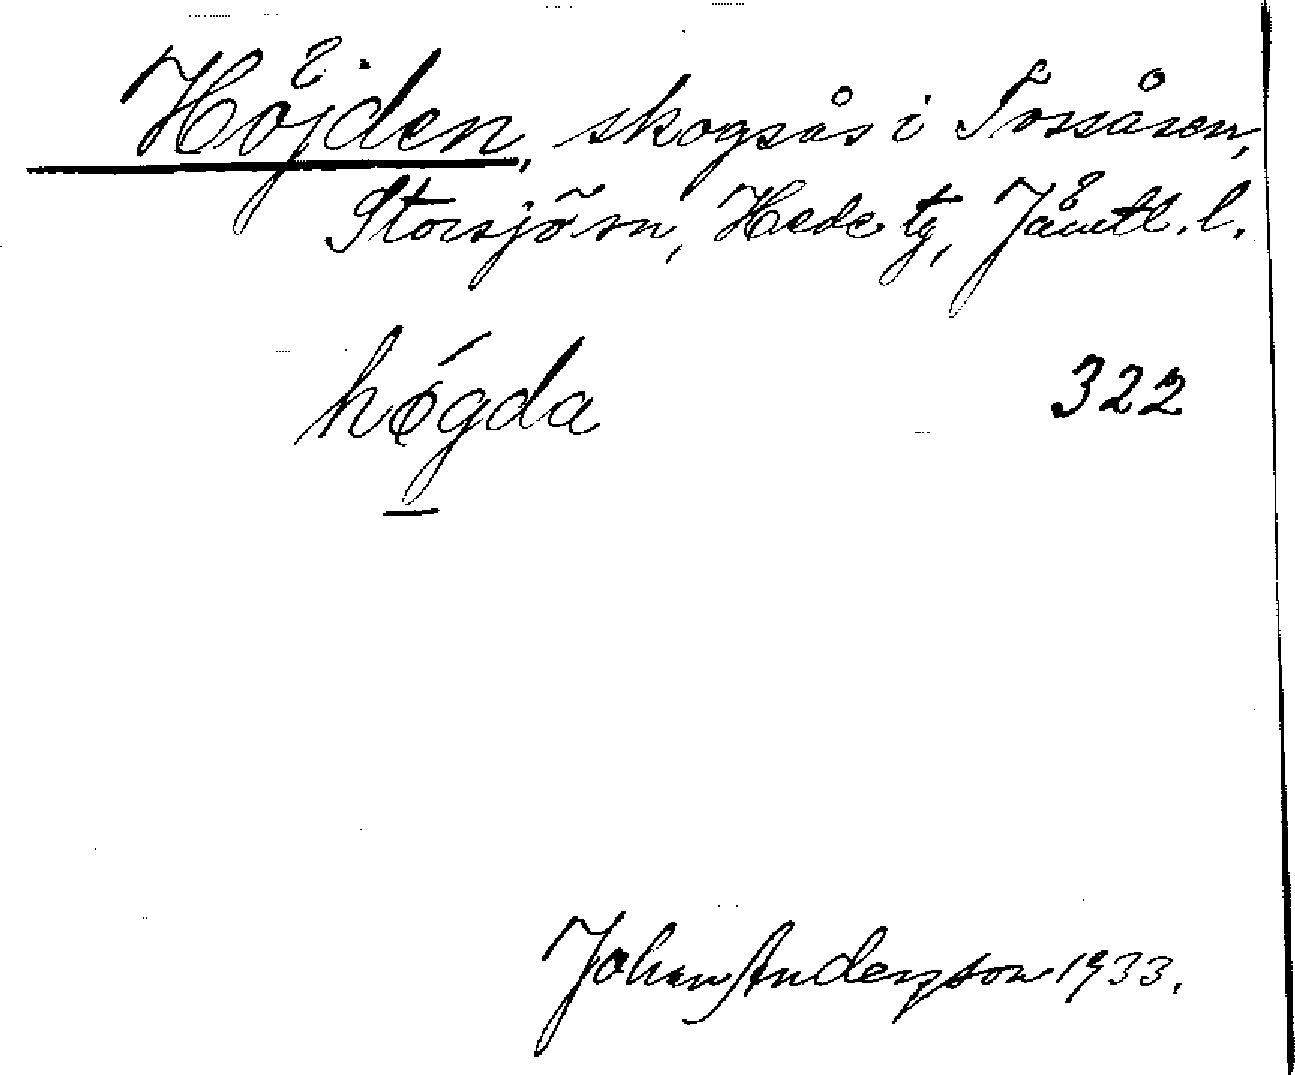 Höjden, skogsås i Tossåsen,
Storsjö sn, Hede tg, Jämtl. l.
hǿgda 322
Johan Anderzson 1933.